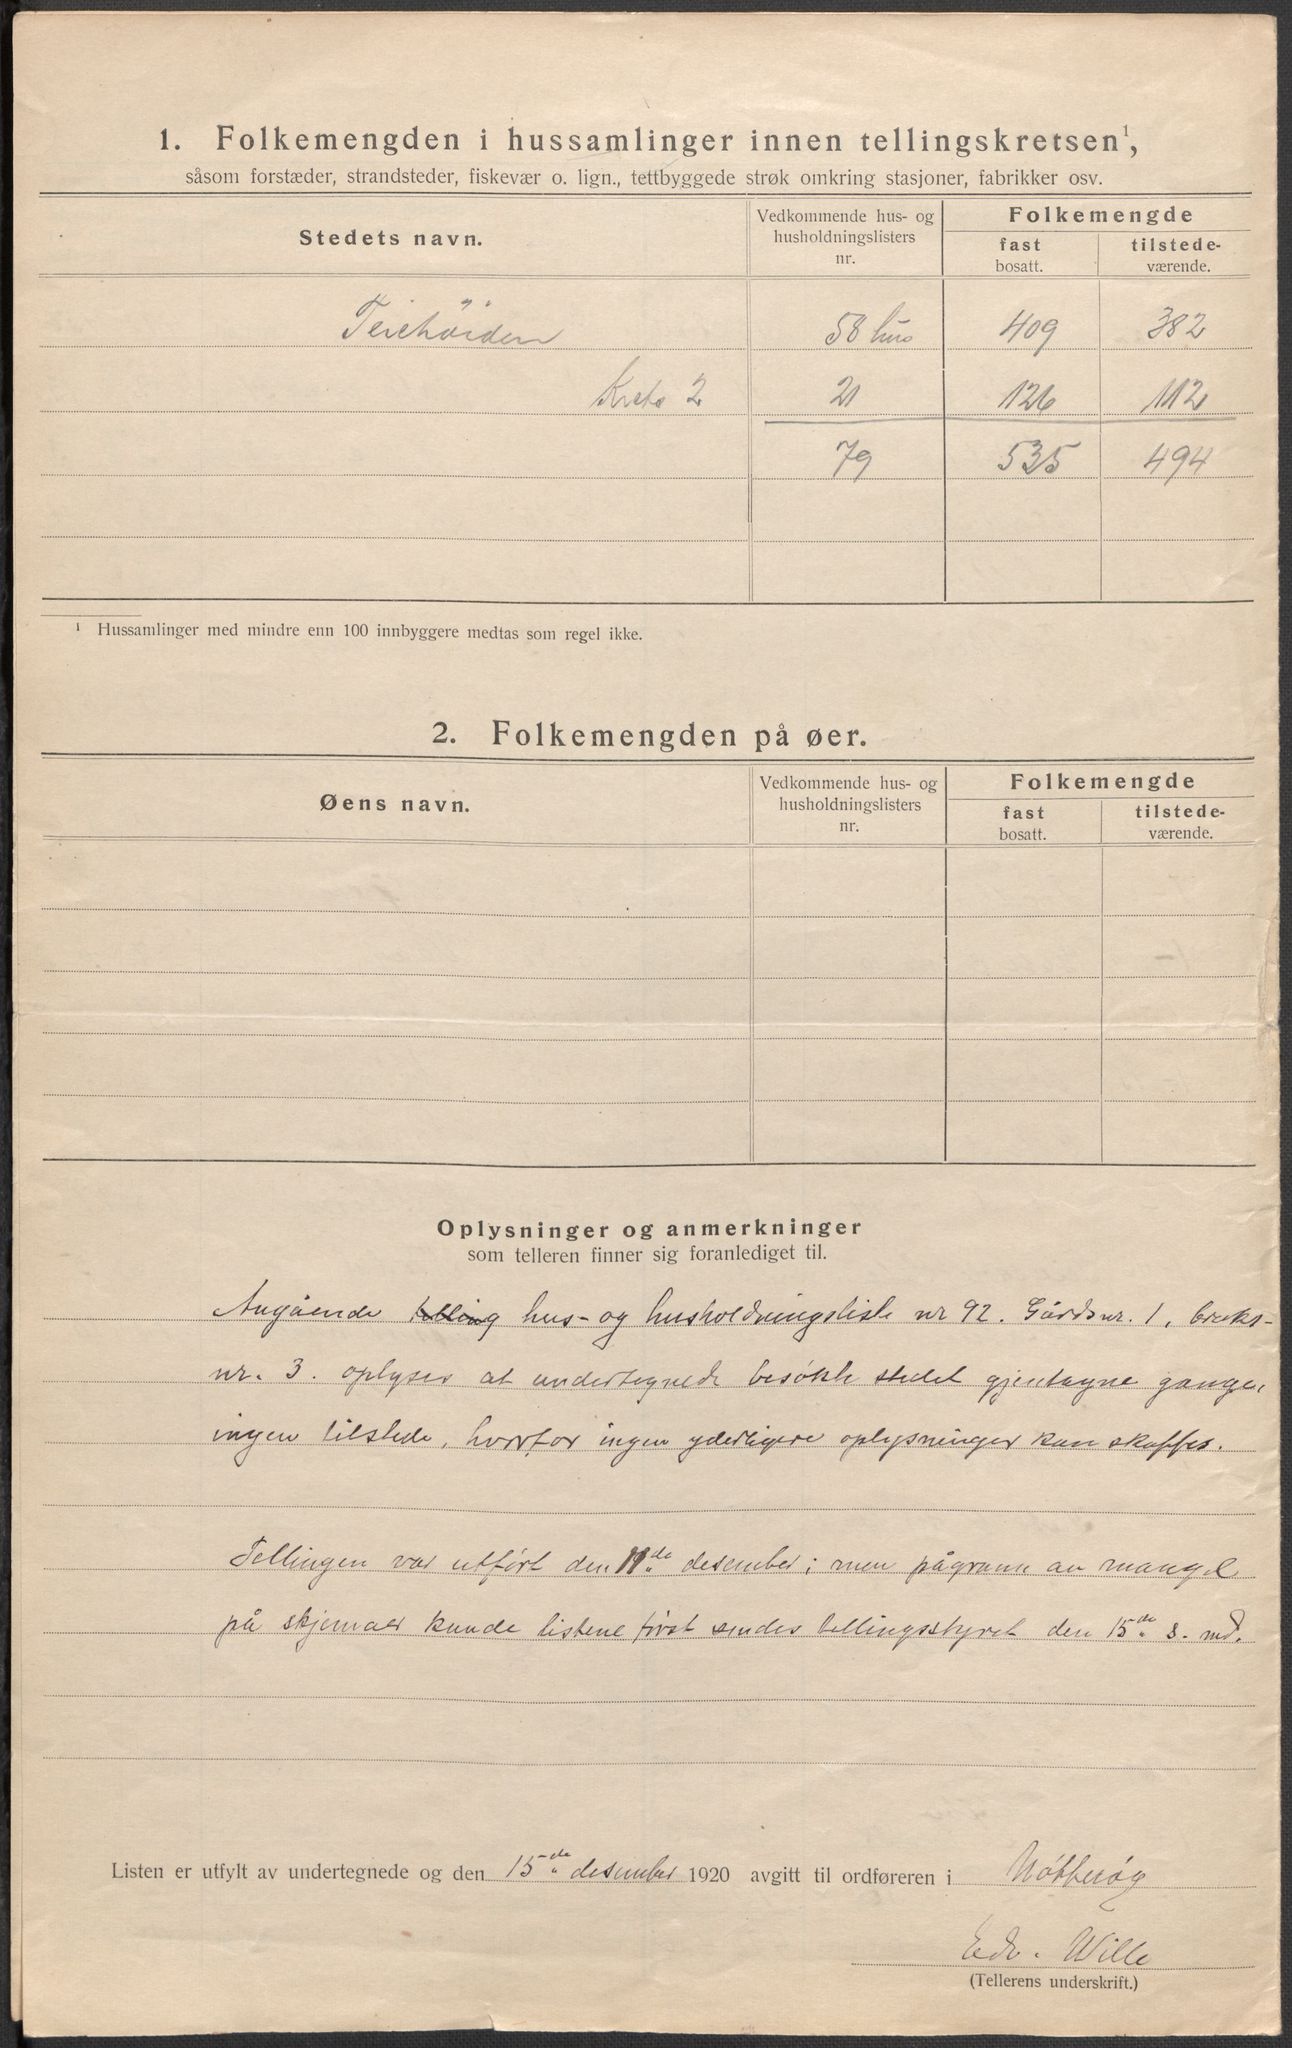 1. Folkemengden i hussamlinger innen tellingskretsen¹,
såsom forstæder, strandsteder, fiskevær o. lign., tettbyggede strøk omkring stasjoner, fabrikker osv.
Stedets navn. Vedkommende hus- og husholdningslisters nr. Folkemengde fast bosatt. tilstede-værende.
Teiehöiden 58 hus 409 382
Krets 2 21 126 112
79 535 494
¹ Hussamlinger med mindre enn 100 innbyggere medtas som regel ikke.
2. Folkemengden på øer.
Øens navn. Vedkommende hus- og husholdningslisters nr. Folkemengde fast bosatt. tilstede-værende.
Oplysninger og anmerkninger
som telleren finner sig foranlediget til.
Angående telling hus- og husholdningsliste nr 92. Gårdsnr. 1, bruks-
nr. 3. oplyses at undertegnede besøkte stedet gjentagne gange,
ingen tilstede, hvorfor ingen yderligere oplysninger kan skaffes.
Tellingen var utført den 11de desember; men pågrunn av mangel
på skjemaer kunde listene først sendes tellingsstyret den 15de s. md.
Listen er utfylt av undertegnede og den 15de desember 1920 avgitt til ordføreren i Nøtterøy
Edv. Wille
(Tellerens underskrift.)